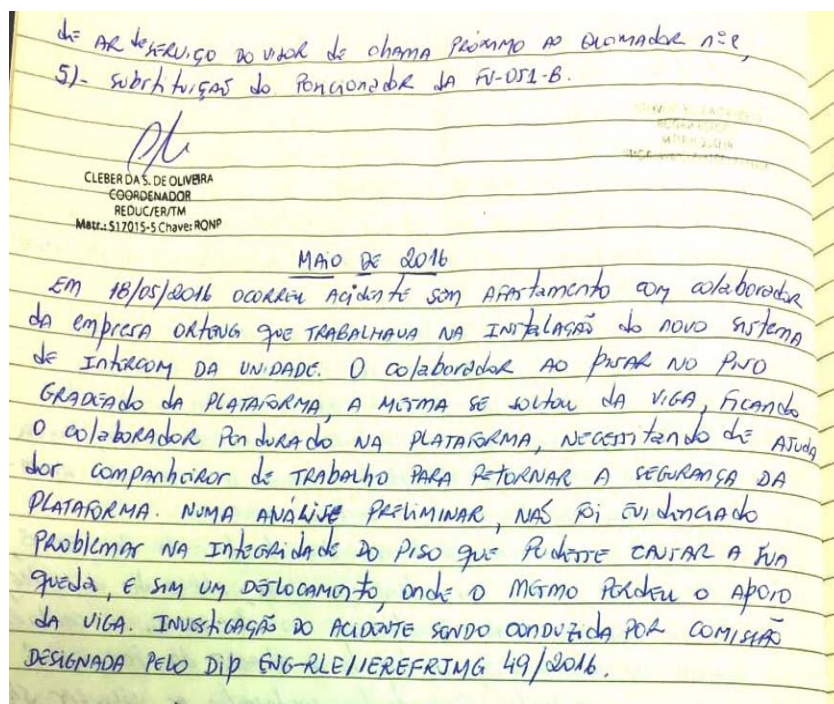 de AR de SERVIÇO DO VISOR de chama PRÓXIMO AO QUEIMADOR nº 2,
5)- Substituição do Poncionador DA FV-051-B.
CLEBER DA S. DE OLIVEIRA
COORDENADOR
REDUC/ER/TM
Matr.: 517015-5 Chave: RQNP
MAIO DE 2016
EM 18/05/2016 OCORREU Acidente sem AFAstamento com colaborador
da empresa ORTENG que TRABALHAVA NA INStALAÇÃO do novo sistema
de INtERCOM DA UNIDADE. O colaborador AO PISAR NO PISO
GRADEADO DA PLATAFORMA, A MESMA SE SOLtou DA VIGA, FICANdo
O colabORADOR PENdurado NA PLATAFORMA, NECESSITANdo de AJUdA
dos companheiros de TRABALHO PARA RETORNAR A SEGURANÇA DA
PLATAFORMA. NUMA ANÁLISE PRELIMINAR, NÃO FOI EVIdENCIAdo
PROBlEMAS NA INTEGRIdAdE DO PISO QUE PUDESSE CAUSAR A SUA
QUEdA, E SIM UM DESLOCAMENTO, ONdE O MESMO PERDEU O APOIO
DA VIGA. INVEStIGAÇÃO DO ACIDENTE SENDO CONDUZIDA POR COMISSÃO
DESIGNADA PELO DIP ENG-RLE/IEREFRJMG 49/2016.